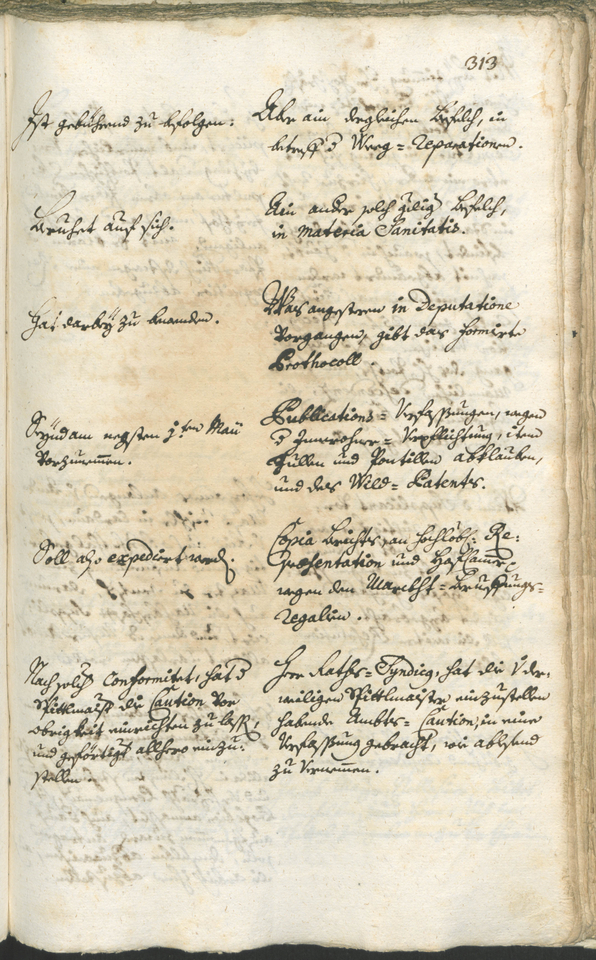 313
Ist gebührend zu befolgen.
Aber ain dergleichen Befelch, in
betreff d Weeg=reparationen.
Beruhet auf sich.
Ain ander solch Befelch,
in Materia Sanitatis.
Hat darbey zu bewenden.
Was angestern in Deputatione
Vorgangen, gibt das formirte
Prothocoll
Seynd am negsten ten Maii
Vorzunemmen.
Publications=Verfassungen, wegen
d Innwohner=Verpflichtung, item
Pullen und Pontillen abklauben,
und des Wild=Patents.
Soll also expedirt werd.
Copia Brichts, an hochlöbl: Re:
Præsentation und Hofcammer
wegen den Marckht=
regalien.
Nach solch Conformitet, hat d
Spittlmaist die Caution Vor
obrigkeit einrichten zu lass,
und geförtigt allhero einzu:
stellen.
Herr Raths=Syndicg, hat die V der:
weiligen Spittlmaister einzustellen
habende Ambts=Caution, in eine
Verfassung gebracht, wie ablesend
zu Vernemmen.